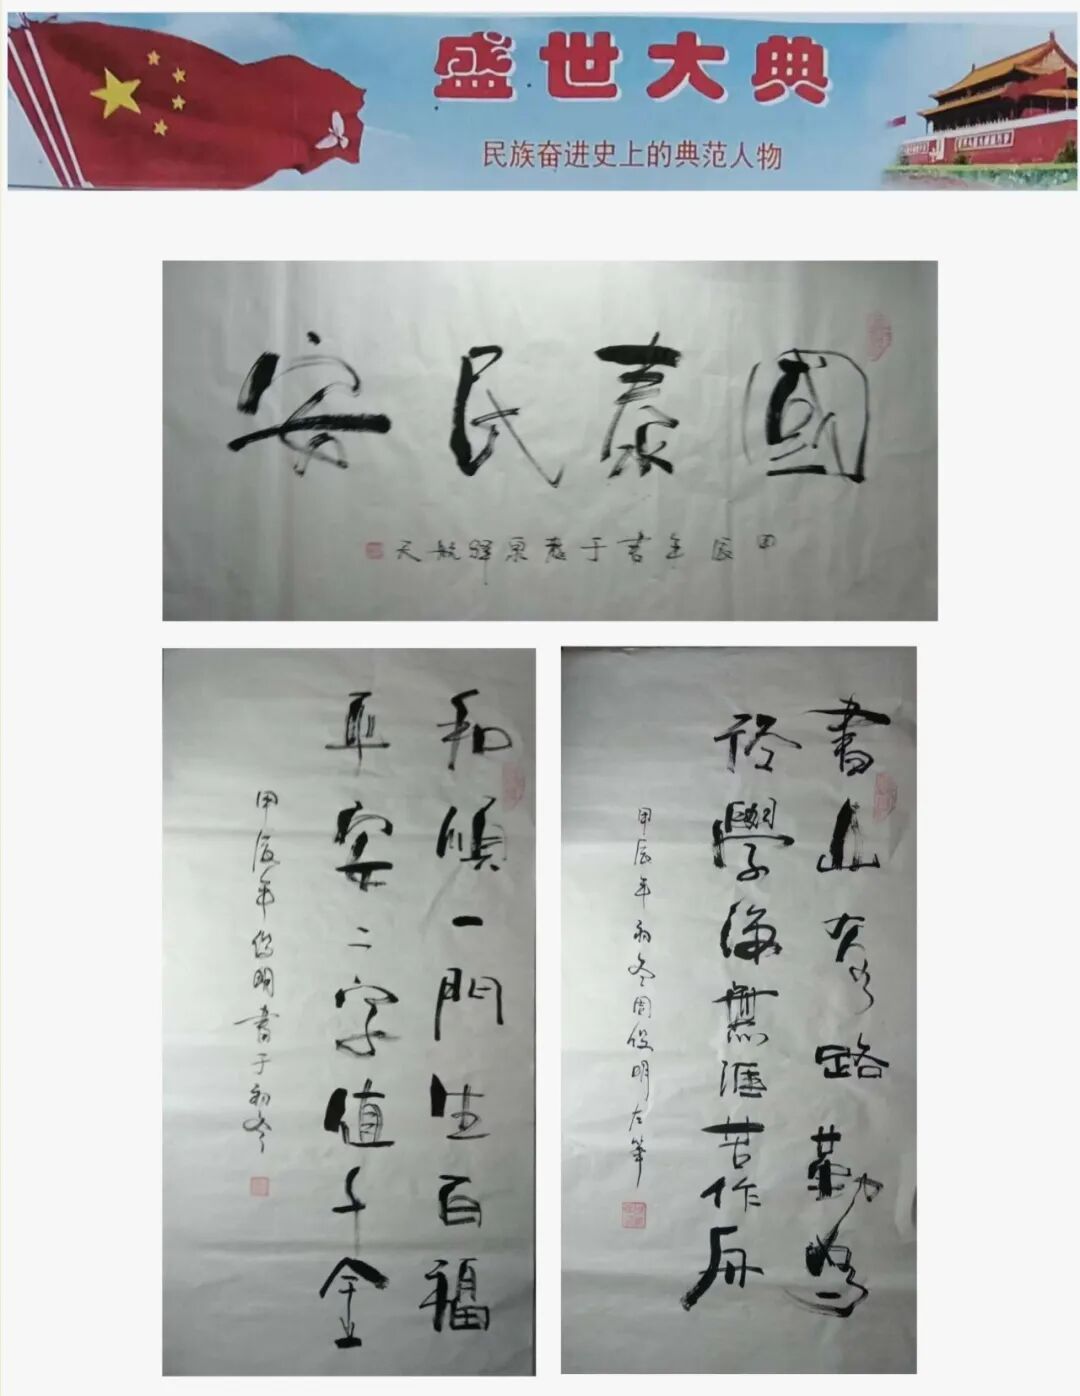 盛世大典
民族奋进史上的典范人物
國泰民安
甲辰年書于
和順一門生百福
平安二字值千金
甲辰年俊明書于初冬
書山有路勤為
徑學海無涯苦作舟
甲辰年初冬周俊明左筆